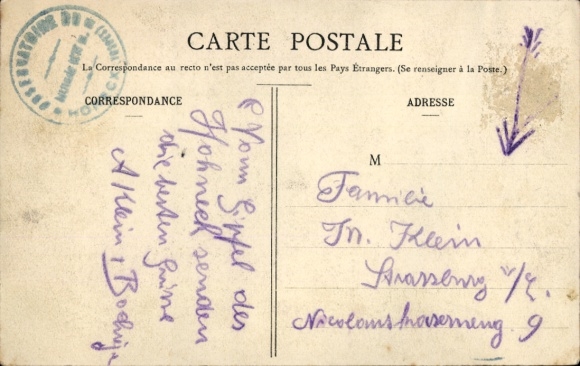 OBSERVATOIRE DU
HOHNECK
CARTE POSTALE
La Correspondance au recto n'est pas acceptée par tous les Pays Étrangers. (Se renseigner à la Poste.)
CORRESPONDANCE
ADRESSE
Vom Gipfel des
Hohneck senden
die besten Grüsse
A Klein
M
Familie
M. Klein
Strassburg i/E.
9